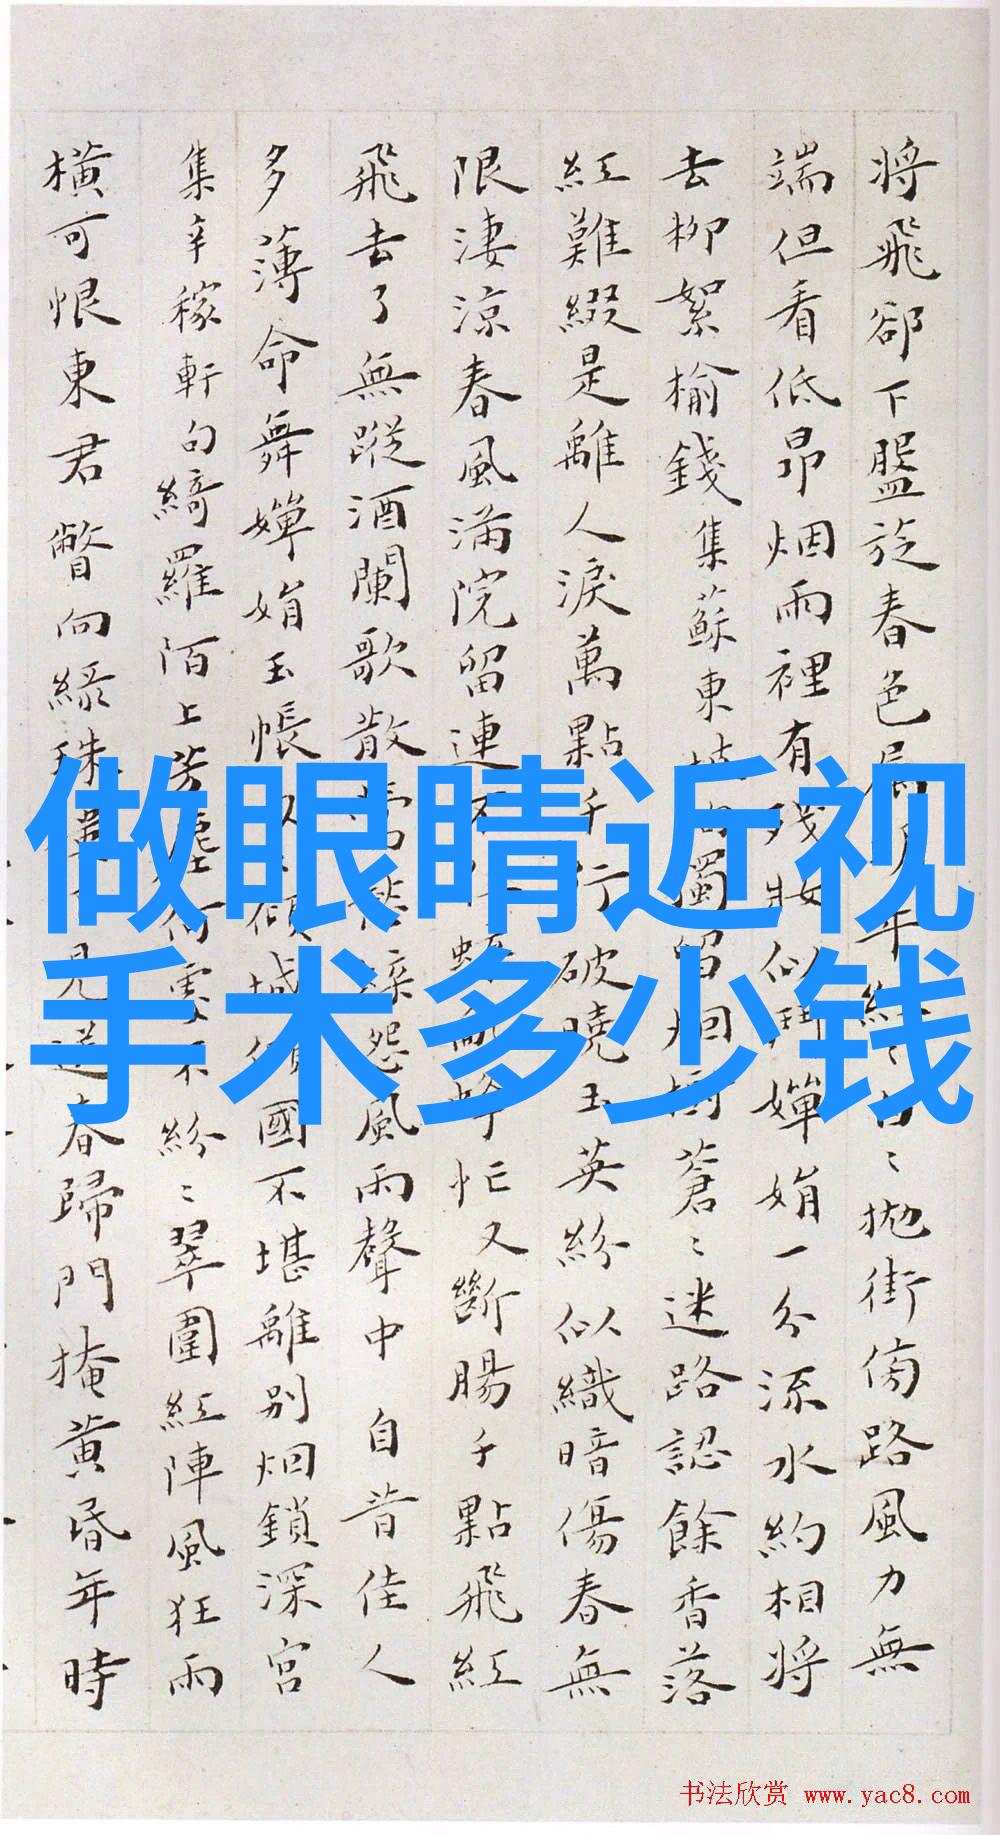 將飛卻下盤旋春色屬年紛〻白〻拋街傍路風力無
端但看低昂烟雨裡有殘妝似鬥嬋娟一分流水約相將
去柳絮榆錢集蘇東坡句獨留烟樹蒼〻迷路認餘香落
紅難綴是離人淚萬點千行破曉玉英紛似織暗傷春無
限淒涼春風滿院留連不蜂忙又斷腸千點飛紅
飛去了無蹤酒闌歌散怨風雨聲中 自昔佳人
多薄命舞嬋娟玉帳傾城傾國不堪離別烟鎖深宮
集辛稼軒句綺羅陌上芳塵紛〻翠圍紅陣風狂雨
橫可恨東君瞥向綠珠見送春歸門掩黃昏年時
做眼睛近视
手术多少钱
书法欣赏 www.yac8.com